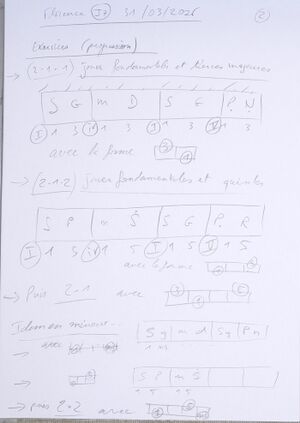 Florence J7 31/03/2025 (2)
Exercices (progression)
→ (2-1-1) jouer fondamentales et tierces majeures
S G m D S G P. N
I 1 3 1 3 I 1 3 V 1 3
avec la forme 3 1
→ (2-1-2) jouer fondamentales et quintes
S P S S G P R
I 1 5 1 5 I 1 5 V 1 5
avec la forme
→ Puis 2-1 avec 3 1 5
Idem en mineur...
avec S g m d S g P n
S P m S
→ puis 2-2 avec